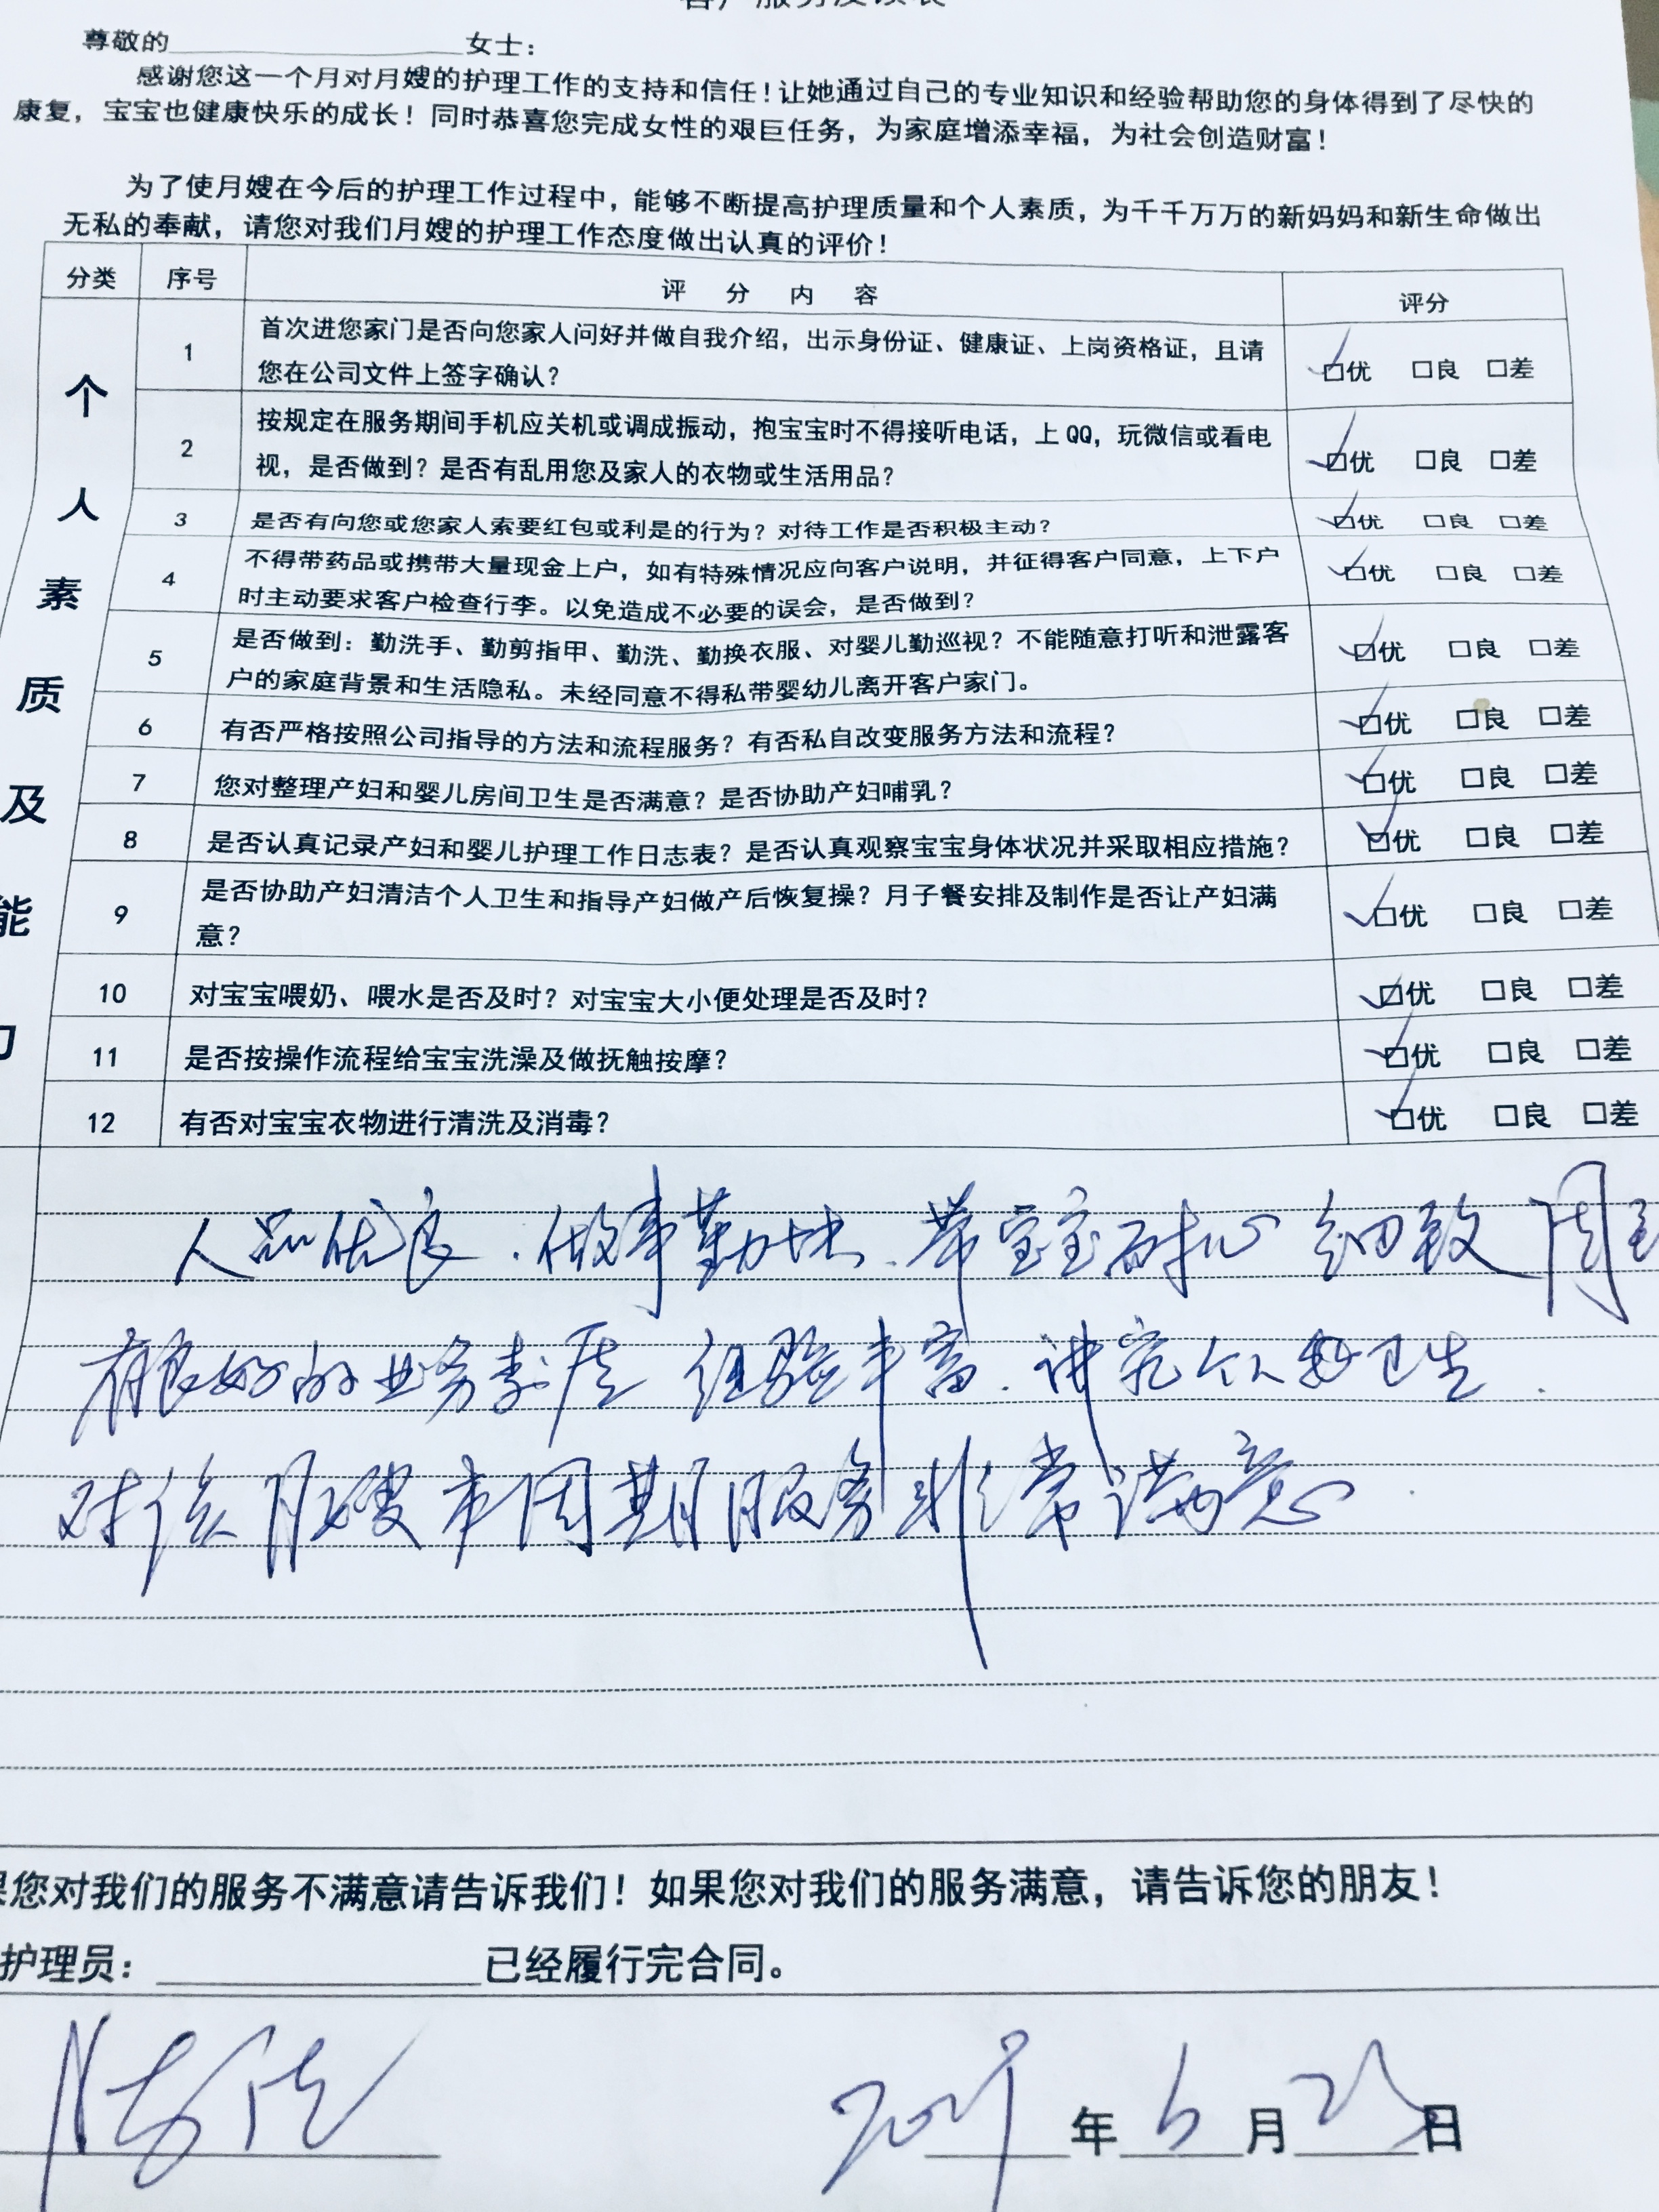 尊敬的 女士：
感谢您这一个月对月嫂的护理工作的支持和信任！让她通过自己的专业知识和经验帮助您的身体得到了尽快的
康复，宝宝也健康快乐的成长！同时恭喜您完成女性的艰巨任务，为家庭增添幸福，为社会创造财富！
为了使月嫂在今后的护理工作过程中，能够不断提高护理质量和个人素质，为千千万万的新妈妈和新生命做出
无私的奉献，请您对我们月嫂的护理工作态度做出认真的评价！
分类 序号 评分内容 评分
个人素质及能
1 首次进您家门是否向您家人问好并做自我介绍，出示身份证、健康证、上岗资格证，且请
您在公司文件上签字确认？ ☑优 □良 □差
2 按规定在服务期间手机应关机或调成振动，抱宝宝时不得接听电话，上QQ，玩微信或看电
视，是否做到？是否有乱用您及家人的衣物或生活用品？ ☑优 □良 □差
3 是否有向您或您家人索要红包或利是的行为？对待工作是否积极主动？ ☑优 □良 □差
4 不得带药品或携带大量现金上户，如有特殊情况应向客户说明，并征得客户同意，上下户
时主动要求客户检查行李。以免造成不必要的误会，是否做到？ ☑优 □良 □差
5 是否做到：勤洗手、勤剪指甲、勤洗、勤换衣服、对婴儿勤巡视？不能随意打听和泄露客
户的家庭背景和生活隐私。未经同意不得私带婴幼儿离开客户家门。 ☑优 □良 □差
6 有否严格按照公司指导的方法和流程服务？有否私自改变服务方法和流程？ ☑优 □良 □差
7 您对整理产妇和婴儿房间卫生是否满意？是否协助产妇哺乳？ ☑优 □良 □差
8 是否认真记录产妇和婴儿护理工作日志表？是否认真观察宝宝身体状况并采取相应措施？ ☑优 □良 □差
9 是否协助产妇清洁个人卫生和指导产妇做产后恢复操？月子餐安排及制作是否让产妇满
意？ ☑优 □良 □差
10 对宝宝喂奶、喂水是否及时？对宝宝大小便处理是否及时？ ☑优 □良 □差
11 是否按操作流程给宝宝洗澡及做抚触按摩？ ☑优 □良 □差
12 有否对宝宝衣物进行清洗及消毒？ ☑优 □良 □差
人品优良.做事勤快.带宝宝耐心 细致 周到
有良好的业务素质 经验丰富.讲究个人 卫生.
对该月嫂本周期服务非常满意.
果您对我们的服务不满意请告诉我们！如果您对我们的服务满意，请告诉您的朋友！
护理员： 已经履行完合同。
年 6 月 日